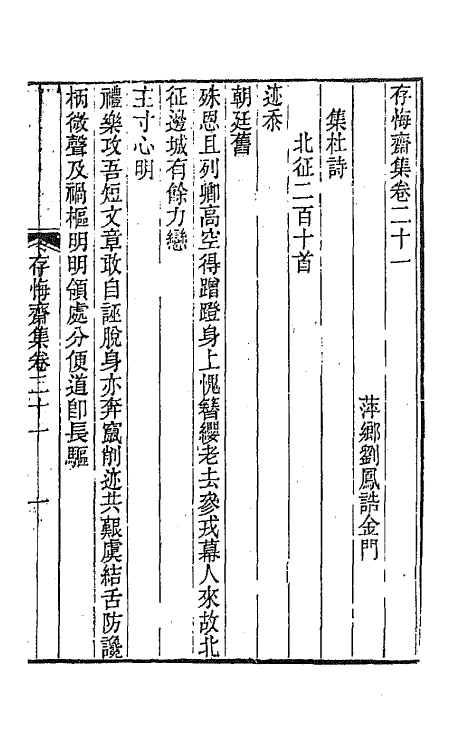 存悔齋集卷二十一
萍鄉劉鳳誥金門
集杜詩
北征二百十首
迹忝
朝廷舊
殊恩且列卿高空得蹭蹬身上愧簪纓老去參戎幕人來故北
征邊城有餘力戀
主寸心明
禮樂攻吾短文章敢自誣脫身亦奔竄削迹共艱虞結舌防讒
柄微聲及禍樞明明領處分便道卽長驅
存悔齋集卷二十一 一